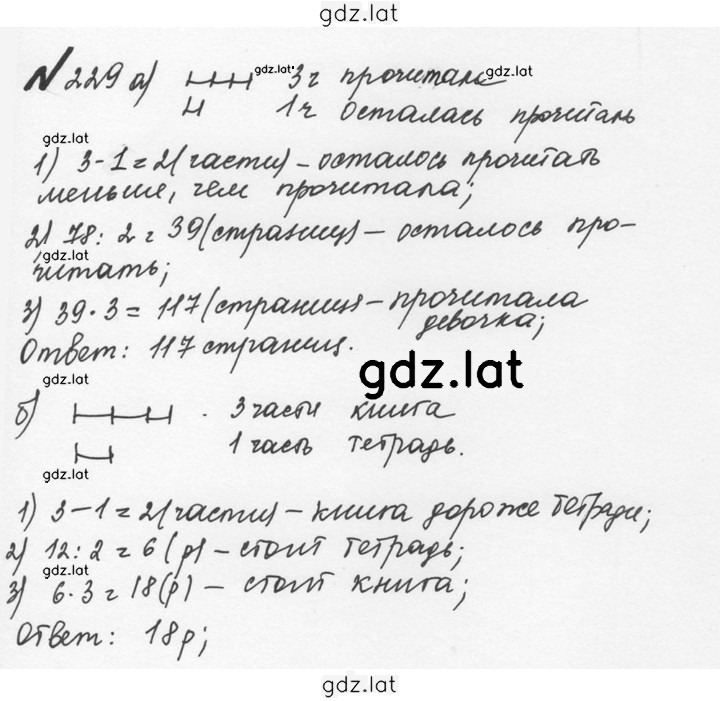 gdz.lat
N 229 а) gdz.lat 3ч прочитала gdz.lat
1ч осталась прочитать
gdz.lat
1) 3-1=2(части) - осталось прочитать
меньше, чем прочитала;
2) 78:2=39(страниц) - осталось про-
gdz.lat
читать;
3) 39·3=117(страниц) - прочитала
девочка;
Ответ: 117 страниц.
gdz.lat
gdz.lat
б) 3 части книга
1 часть тетрадь.
gdz.lat
1) 3-1=2(части) - книга дороже тетради;
2) 12:2=6(р) - стоит тетрадь;
gdz.lat
3) 6·3=18(р) - стоит книга;
Ответ: 18р;
gdz.lat